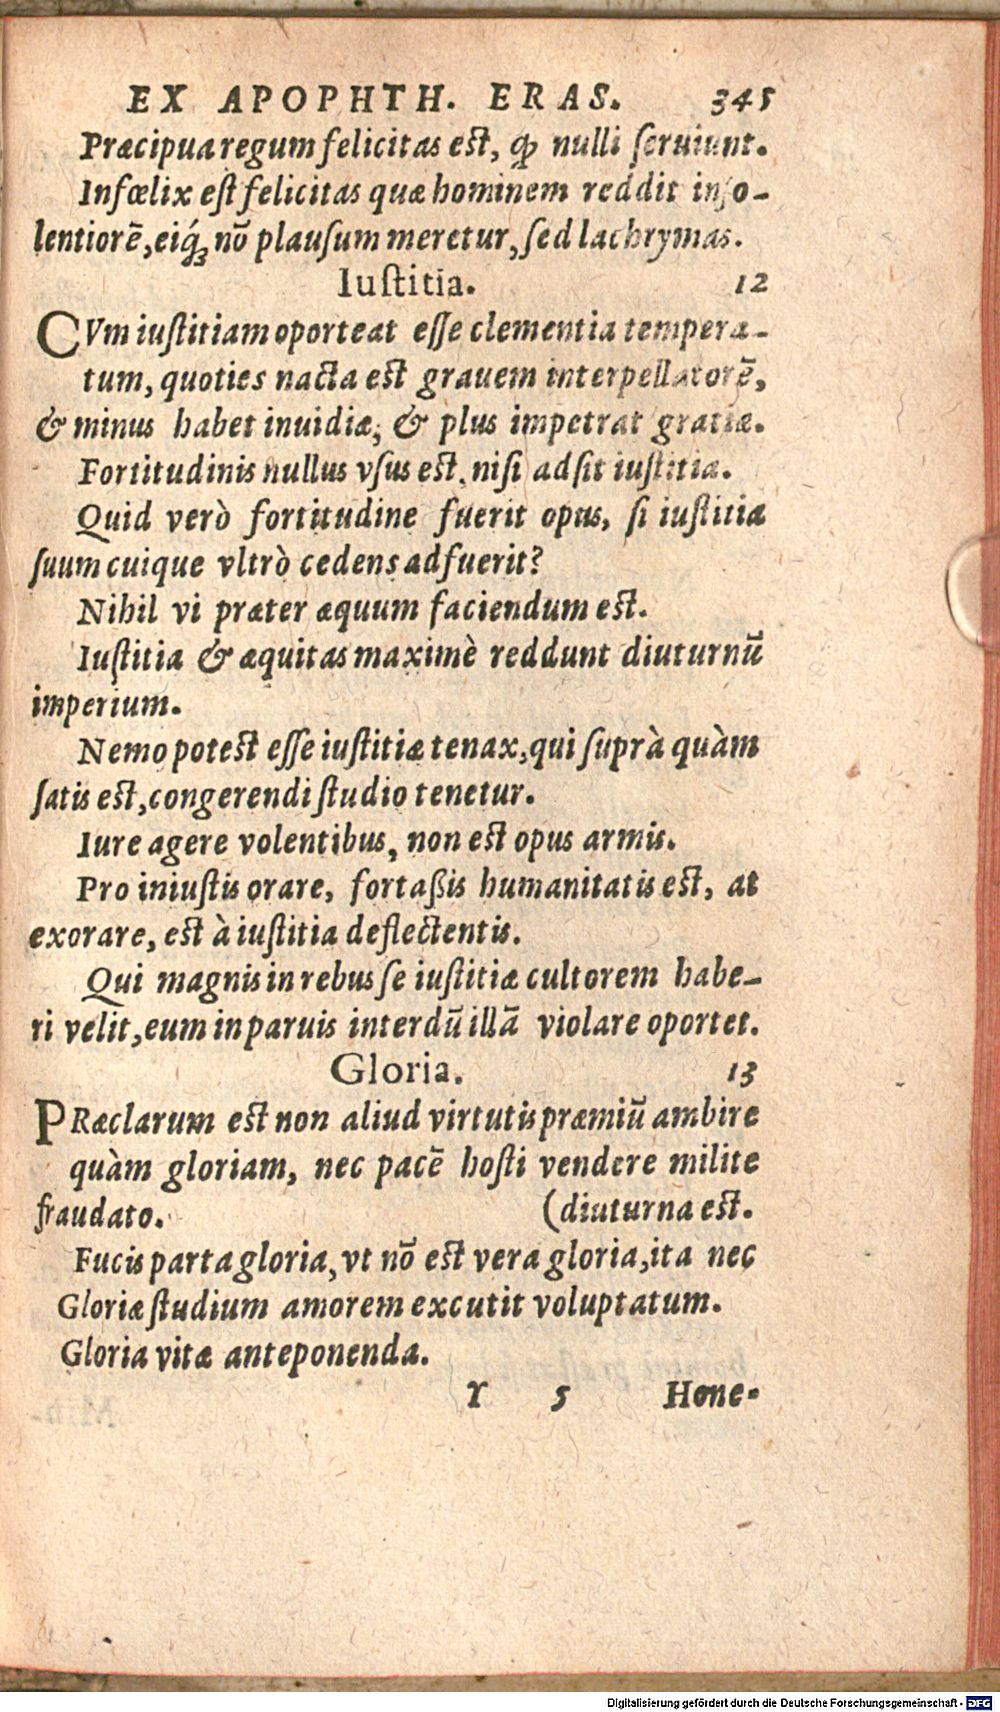 EX APOPHTH. ERAS. 345
Præcipua regum felicitas est, ꝙ nulli seruiunt.
Infœlix est felicitas quæ hominem reddit inso-
lentiorē, eiq́ꝫ nō plausum meretur, sed lachrymas.
Iustitia. 12
CVm iustitiam oporteat esse clementia tempera-
tum, quoties nacta est grauem interpellatorē,
& minus habet inuidiæ, & plus impetrat gratiæ.
Fortitudinis nullus vsus est, nisi adsit iustitia.
Quid verò fortitudine fuerit opus, si iustitiæ
suum cuique vltrò cedens adfuerit?
Nihil vi præter æquum faciendum est.
Iustitia & æquitas maximè reddunt diuturnū
imperium.
Nemo potest esse iustitiæ tenax, qui suprà quàm
satis est, congerendi studio tenetur.
Iure agere volentibus, non est opus armis.
Pro iniustis orare, fortaßis humanitatis est, at
exorare, est à iustitia deflectentis.
Qui magnis in rebus se iustitiæ cultorem habe-
ri velit, eum in paruis interdū illā violare oportet.
Gloria. 13
PRæclarum est non aliud virtutis præmiū ambire
quàm gloriam, nec pacē hosti vendere milite
fraudato. (diuturna est.
Fucis parta gloria, vt nō est vera gloria, ita nec
Gloriæ studium amorem excutit voluptatum.
Gloria vitæ anteponenda.
Y 5 Hone-
Digitalisierung gefördert durch die Deutsche Forschungsgemeinschaft - DFG